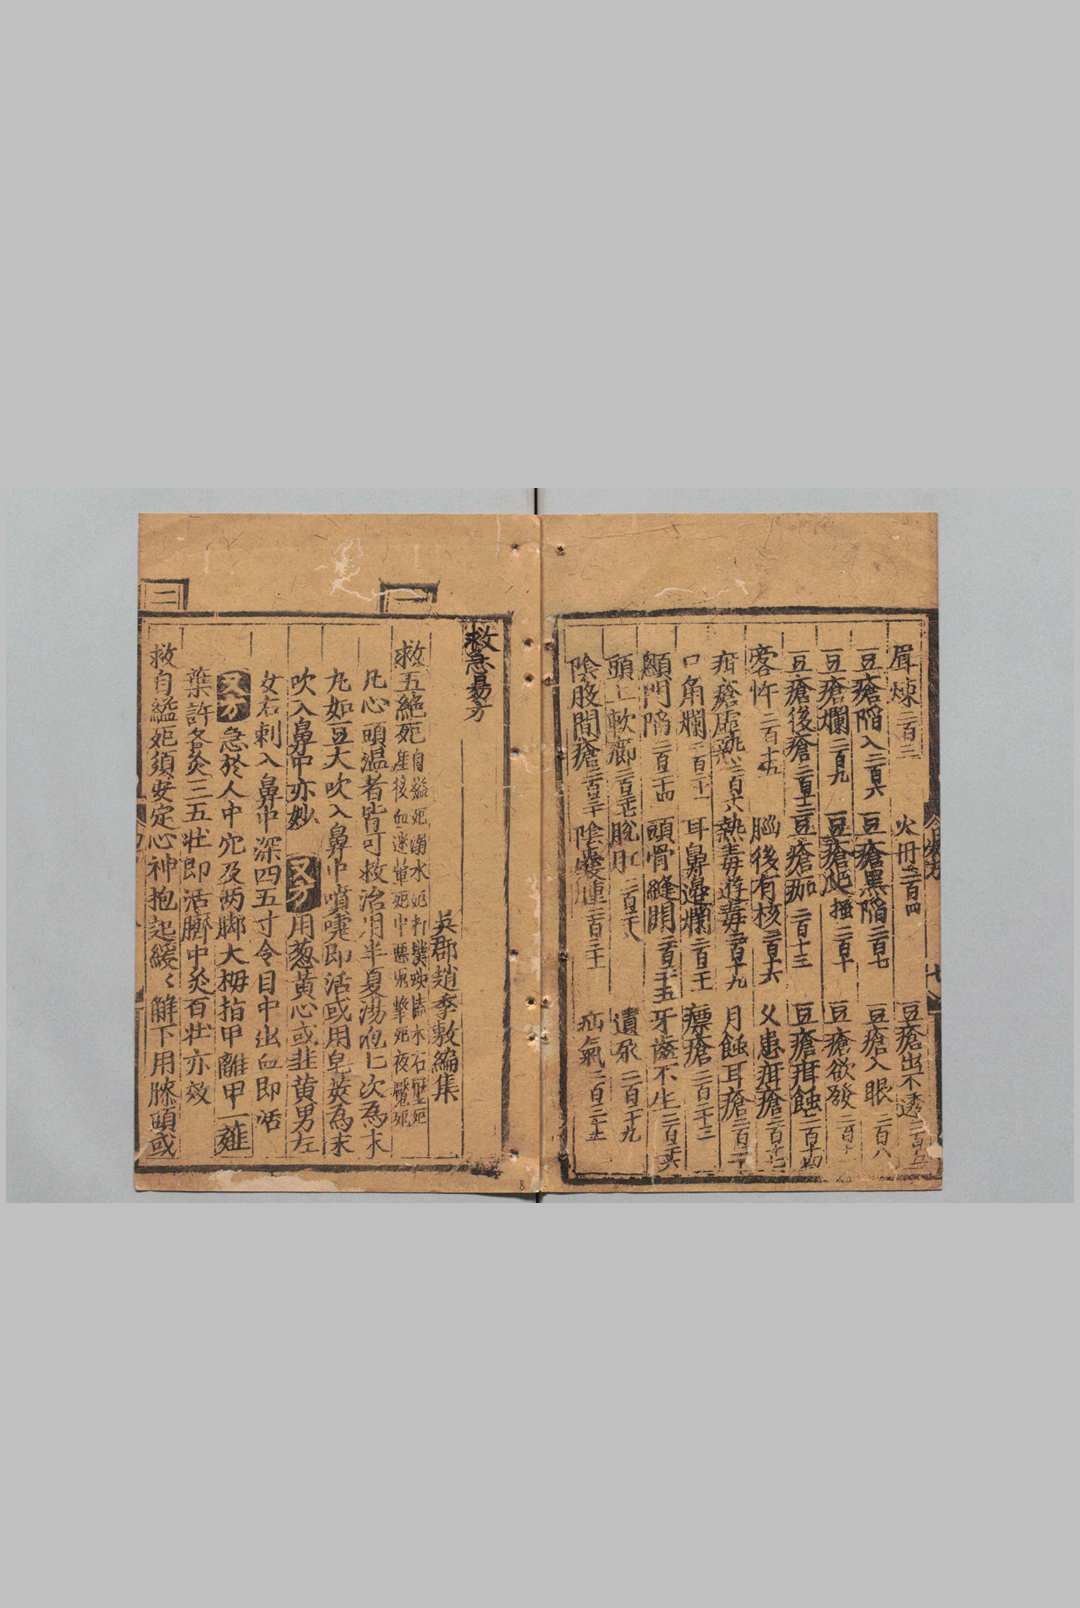 眉煉二百二 火丹二百四 豆瘡出不透二百五
豆瘡陷入二百六 豆瘡黑陷二百七 豆瘡入眼二百八
豆瘡爛二百九 豆瘡爬搔二百十 豆瘡欲發二百十
豆瘡後瘡二百十二 豆瘡痂二百十三 豆瘡疳蝕二百十四
客忤二百十五 腦後有核二百十六 父患疳瘡二百十七
疳瘡虛熱二百十八 熱毒遊毒二百十九 月蝕耳瘡二百二十
口角爛二百二十一 耳鼻邊爛二百二十二 瘭瘡二百二十三
顖門陷二百二十四 頭骨縫開二百二十五 牙齒不生二百二十六
頭上軟癤二百二十七 脫肛二百二十八 遺尿二百二十九
陰股間瘡二百三十 陰囊連二百三十一 疝氣二百三十二
救急易方
吳郡趙季敷編集
救五絕死自縊死溺水死打撲或墻木石壓死
產後血迷暈死中惡鬼擊死夜魘死
凡心頭溫者皆可救治用半夏湯泡七次為末
丸如豆大吹入鼻中噴嚏即活或用皂莢為末
吹入鼻中亦妙 又方 用葱黃心或韭黃男左
女右刺入鼻中深四五寸令目中出血即活
又方 急於人中穴及两脚大拇指甲離甲一薤
葉許各灸三五壯即活臍中灸百壯亦效
救自縊死須安定心神抱起緩〻解下用膝頭或
二
一